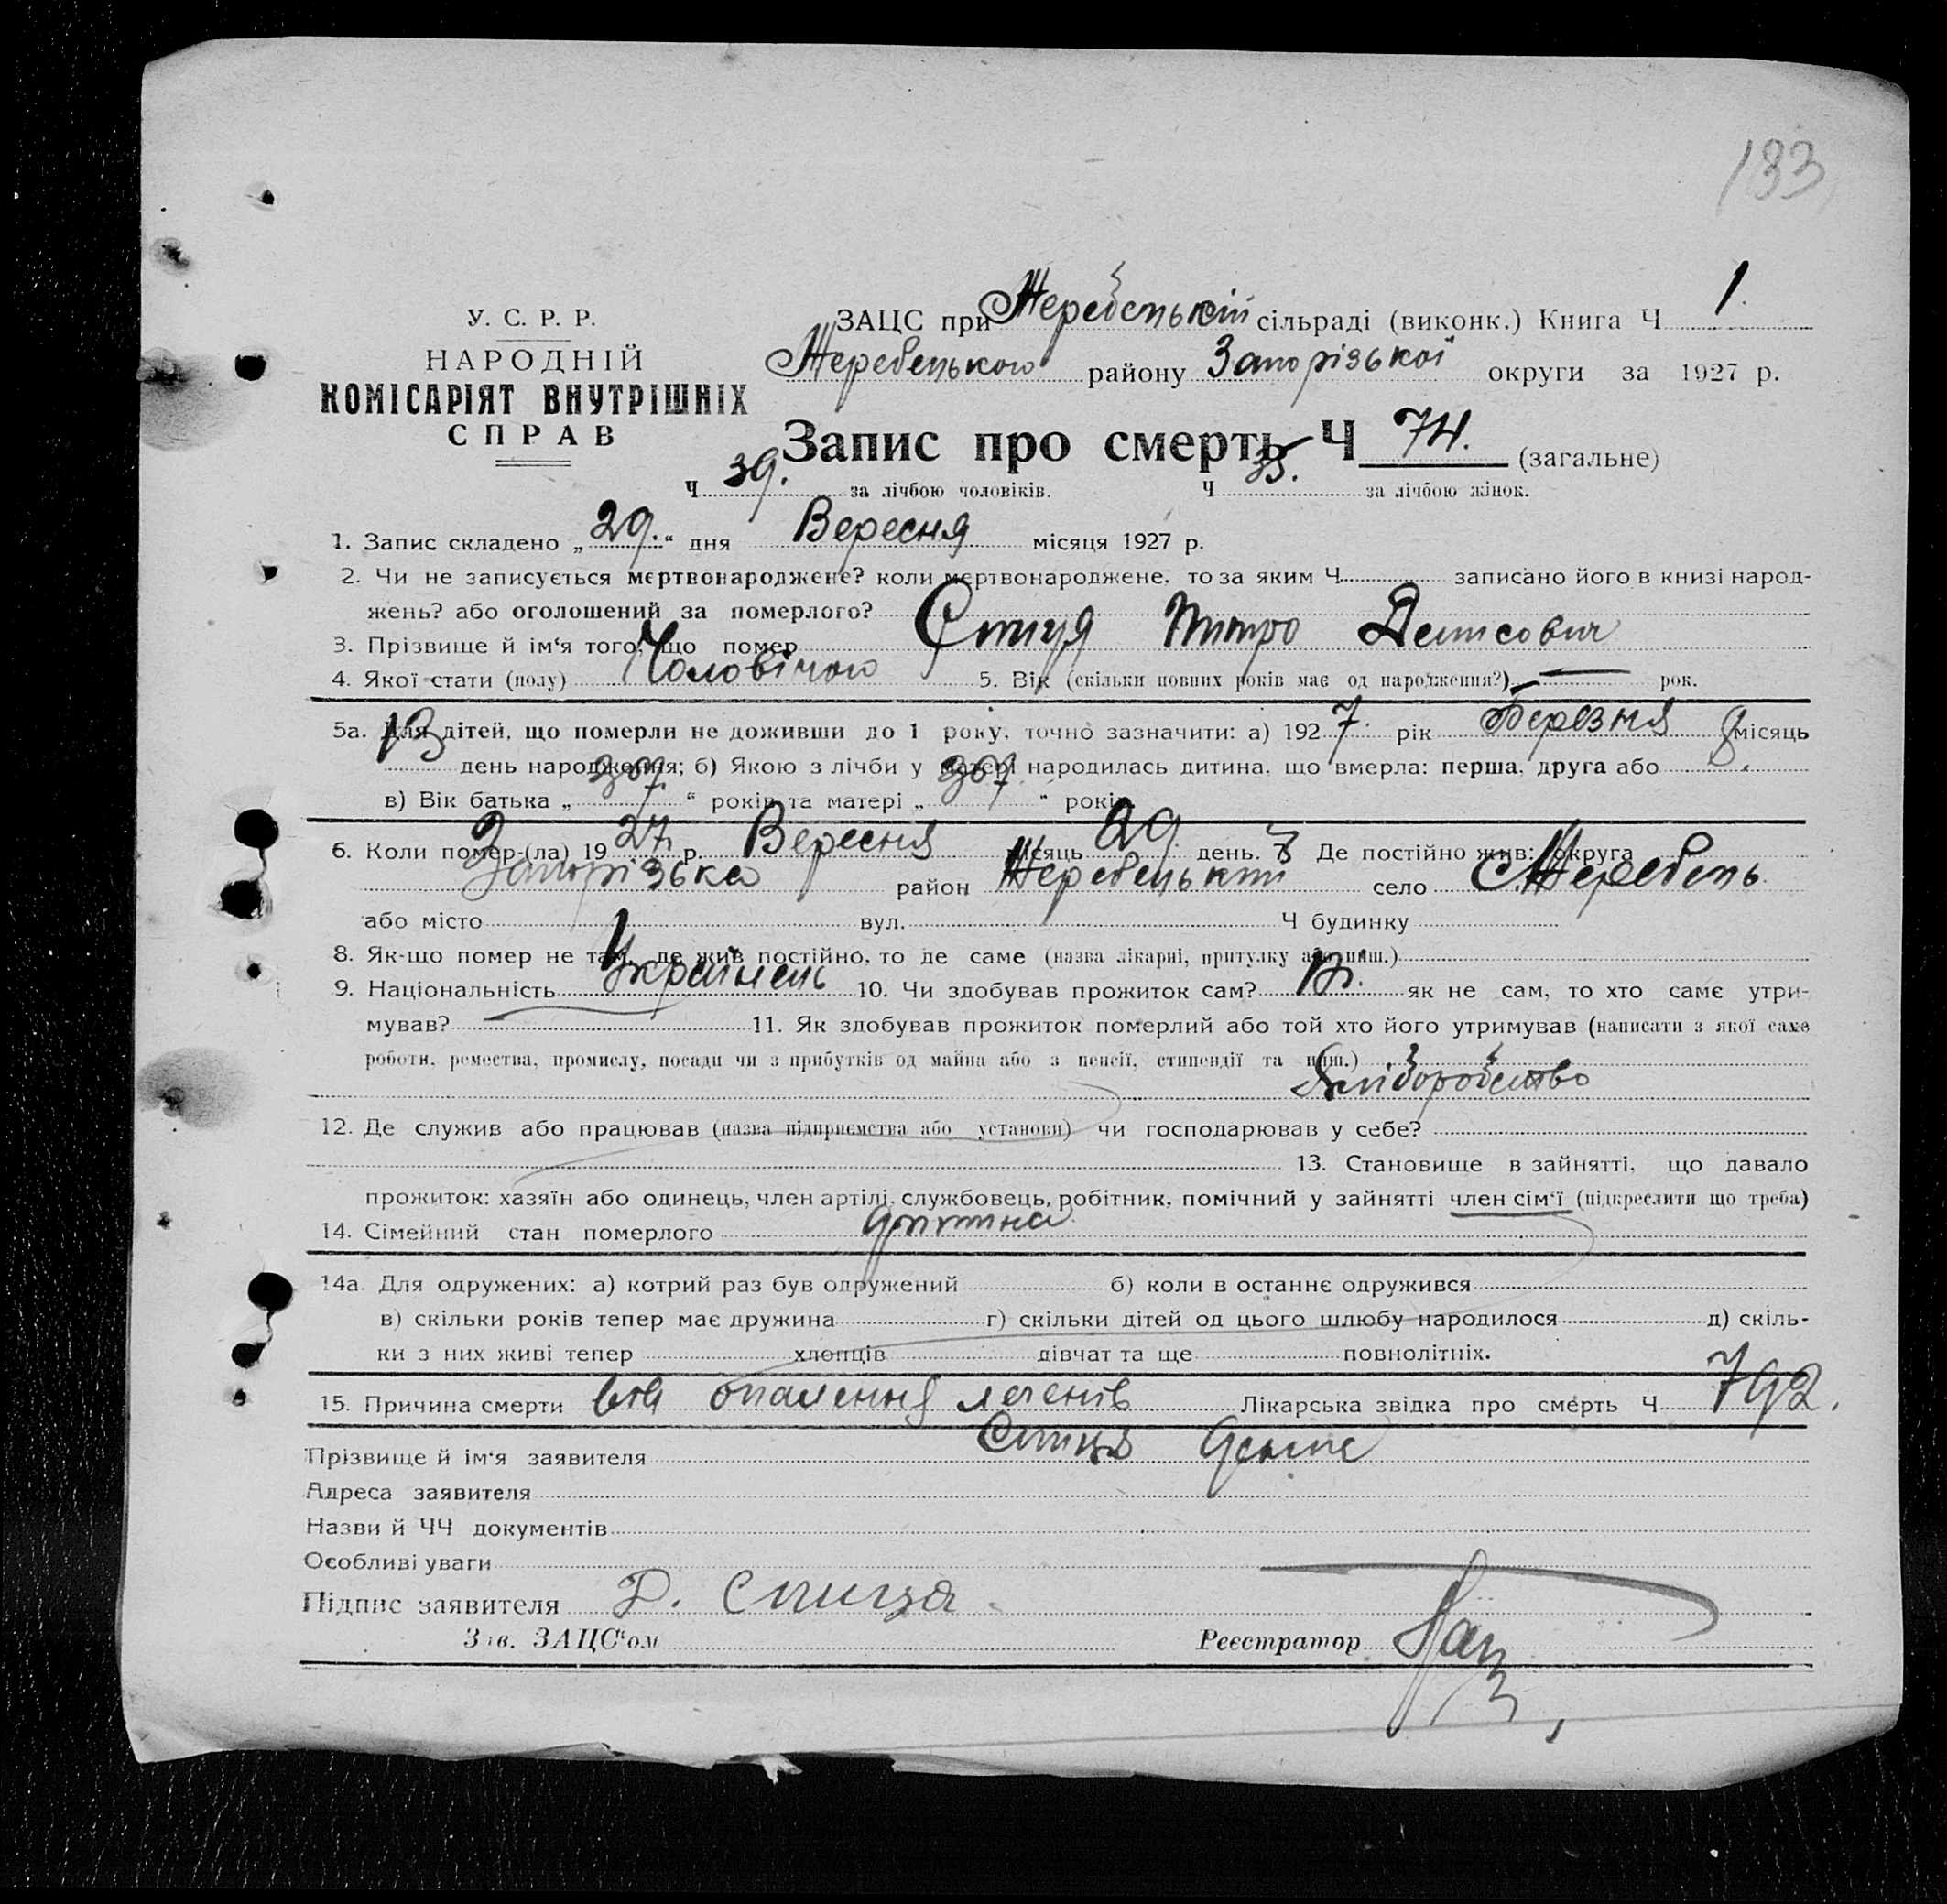 133
У. С. Р. Р.
НАРОДНІЙ
КОМІСАРІЯТ ВНУТРІШНІХ
СПРАВ
ЗАЦС при Жеребецькій сільраді (виконк.) Книга Ч 1.
Жеребецького району Запорізької округи за 1927 р.
Запис про смерть Ч 74. (загальне)
Ч 39. за лічбою чоловіків. Ч 35. за лічбою жінок.
1. Запис складено „29.“ дня Вересня місяця 1927 р.
2. Чи не записується мертвонароджене? коли мертвонароджене, то за яким Ч записано його в книзі народ-
жень? або оголошений за померлого?
3. Прізвище й ім‘я того, що помер Спиця Дмитро Денисович
4. Якої стати (полу) Чоловічого 5. Вік (скільки повних років має од народження?) — рок.
5а. Для дітей, що померли не доживши до 1 року, точно зазначити: а) 1927. рік Березня місяць
13 день народження; б) Якою з лічби у матері народилась дитина, що вмерла: перша, друга або 8.
в) Вік батька „ “ років та матері „ “ років.
6. Коли помер-(ла) 1927 р. Вересня місяць 29 день. 7 Де постійно жив: округа
Запорізька район Жеребецький село с. Жеребець
або місто вул. Ч будинку
8. Як-що помер не там, де жив постійно, то де саме (назва лікарні, притулку або инш.)
9. Національність Українець 10. Чи здобував прожиток сам? Ні. як не сам, то хто саме утри-
мував? 11. Як здобував прожиток померлий або той хто його утримував (написати з якої саме
роботи, ремества, промислу, посади чи з прибутків од майна або з пенсії, стипендії та инш.)
Хліборобство
12. Де служив або працював (назва підприємства або установи) чи господарював у себе?
13. Становище в зайнятті, що давало
прожиток: хазяїн або одинець, член артілі, службовець, робітник, помічний у зайнятті член сім‘ї (підкреслити що треба)
14. Сімейний стан померлого дитина
14а. Для одружених: а) котрий раз був одружений б) коли в останнє одружився
в) скільки років тепер має дружина г) скільки дітей од цього шлюбу народилося д) скіль-
ки з них живі тепер хлопців дівчат та ще повнолітніх.
15. Причина смерти від опалення легенів Лікарська звідка про смерть Ч 792.
Прізвище й ім‘я заявителя Спиця Денис
Адреса заявителя
Назви й ЧЧ документів
Особливі уваги
Підпис заявителя Д. Спица
Зав. ЗАЦС‘ом Реєстратор